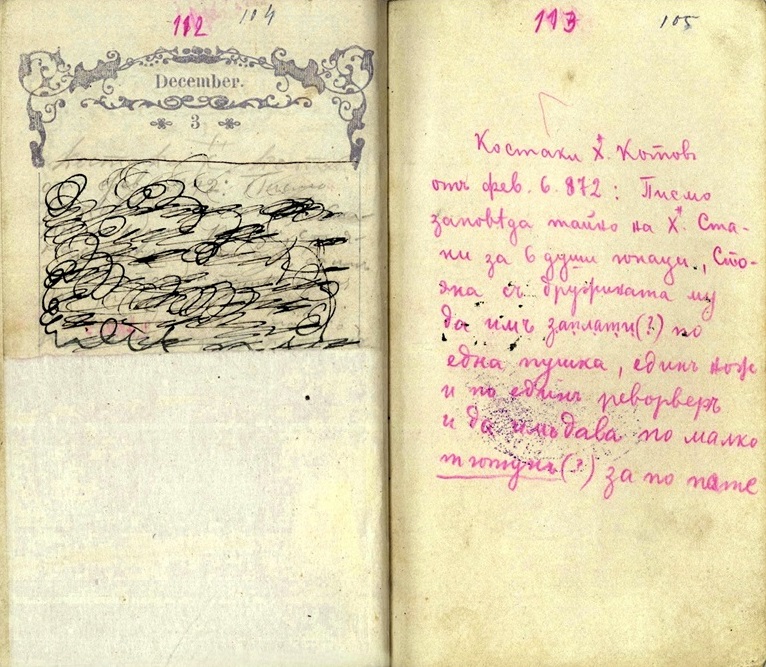 112 104
December.
3
113 105
Костаки Х. Котовъ
отъ фев. 6. 872: Писмо
заповѣда тайно на Х. Ста-
ни за 6 души юнаци, Сто-
яна съ дружината му
да имъ заплати(?) по
една пушка, единъ ножъ
и по единъ реворверъ
и да имъ дава по малко
тютунъ(?) за по пате